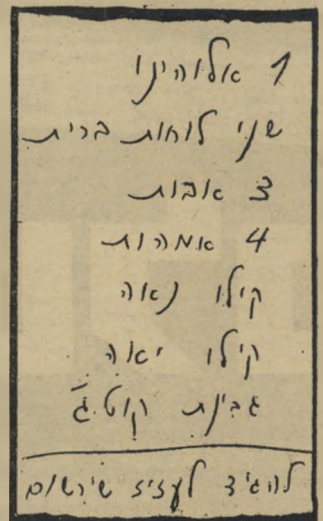 1 אלוהינו
שני לוחות ברית
3 אבות
4 אמהות
קילו נאה
קילו יאה
גבינת קוטג'
להגיד לעזיז שירשום